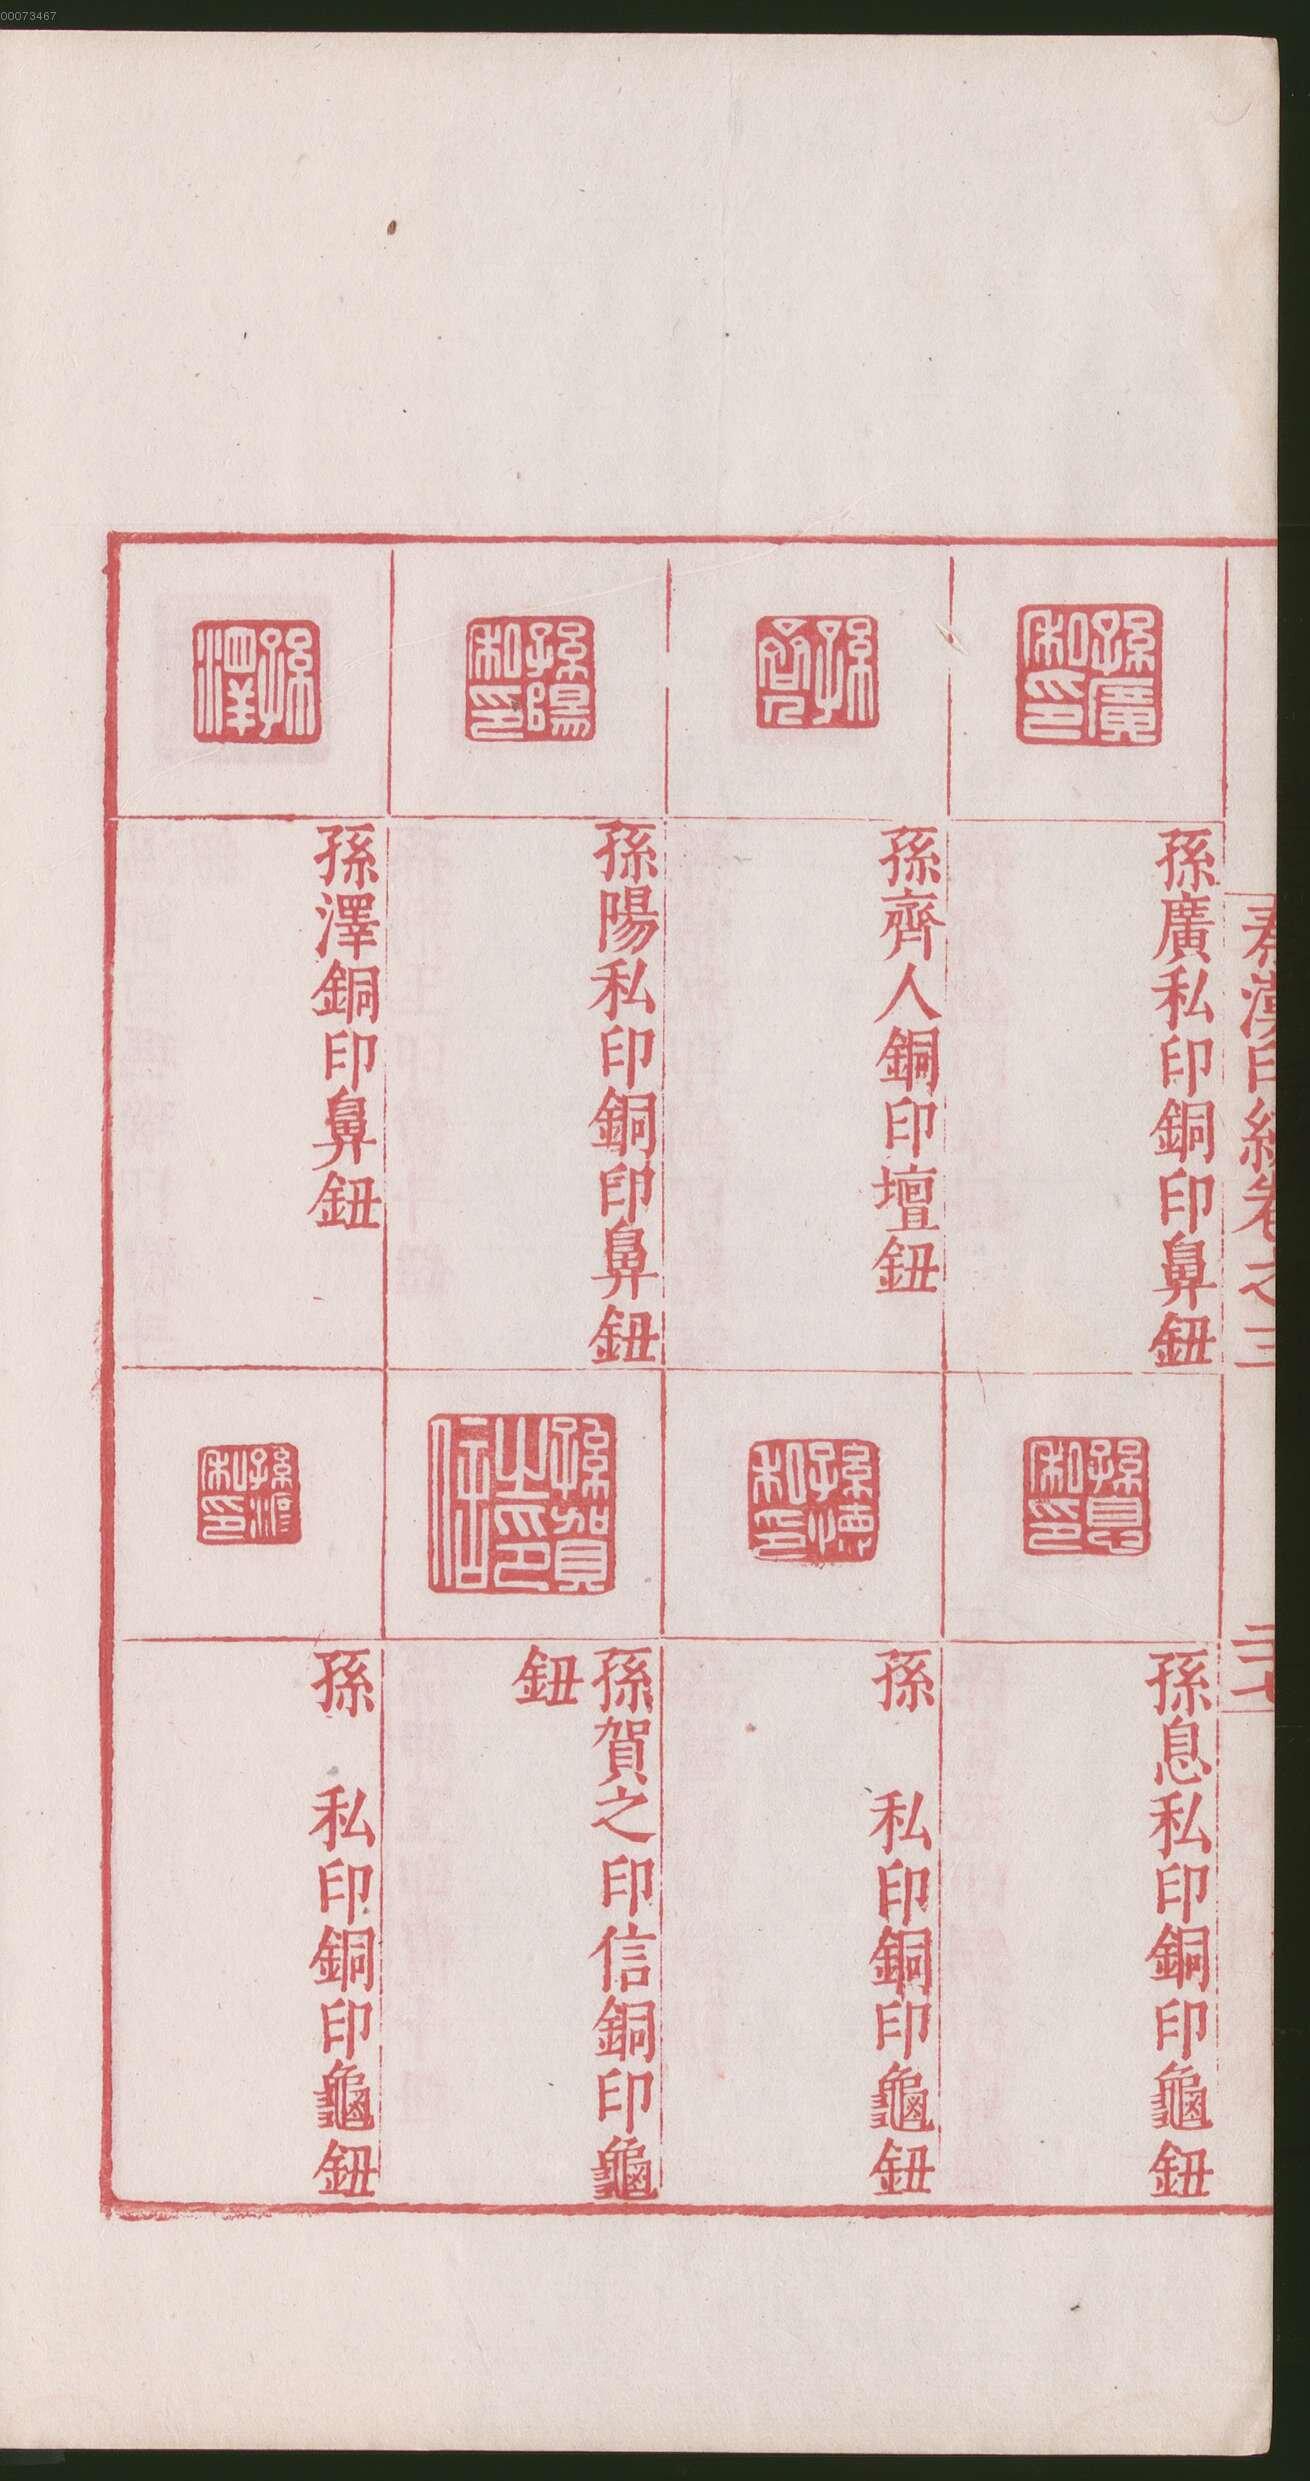 00073467
秦漢印統卷之三
二十七
孫廣私印
孫廣私印銅印鼻鈕
孫齊人
孫齊人銅印壇鈕
孫陽私印
孫陽私印銅印鼻鈕
孫澤
孫澤銅印鼻鈕
孫息私印
孫息私印銅印龜鈕
孫 私印
孫 私印銅印龜鈕
孫賀之印信
孫賀之印信銅印龜
鈕
孫 私印
孫 私印銅印龜鈕